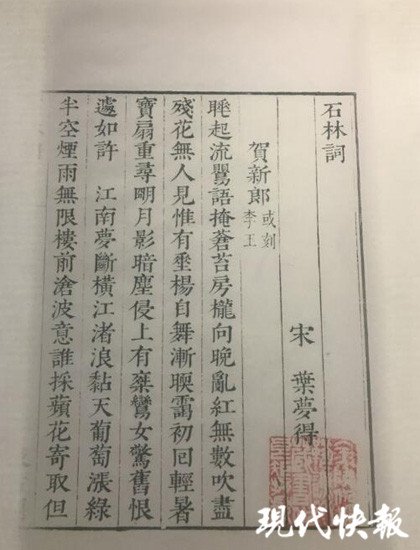 石林詞
宋 葉夢得
賀新郎 或刻李玉
睡起流鶯語掩蒼苔房櫳向晚亂紅無數吹盡
殘花無人見惟有垂楊自舞漸暖靄初回輕暑
寶扇重尋眀月影暗塵侵上有乘鸞女驚舊恨
遽如許 江南夢斷橫江渚浪黏天葡萄漲綠
半空煙雨無限樓前滄波意誰採蘋花寄取但
現代快報